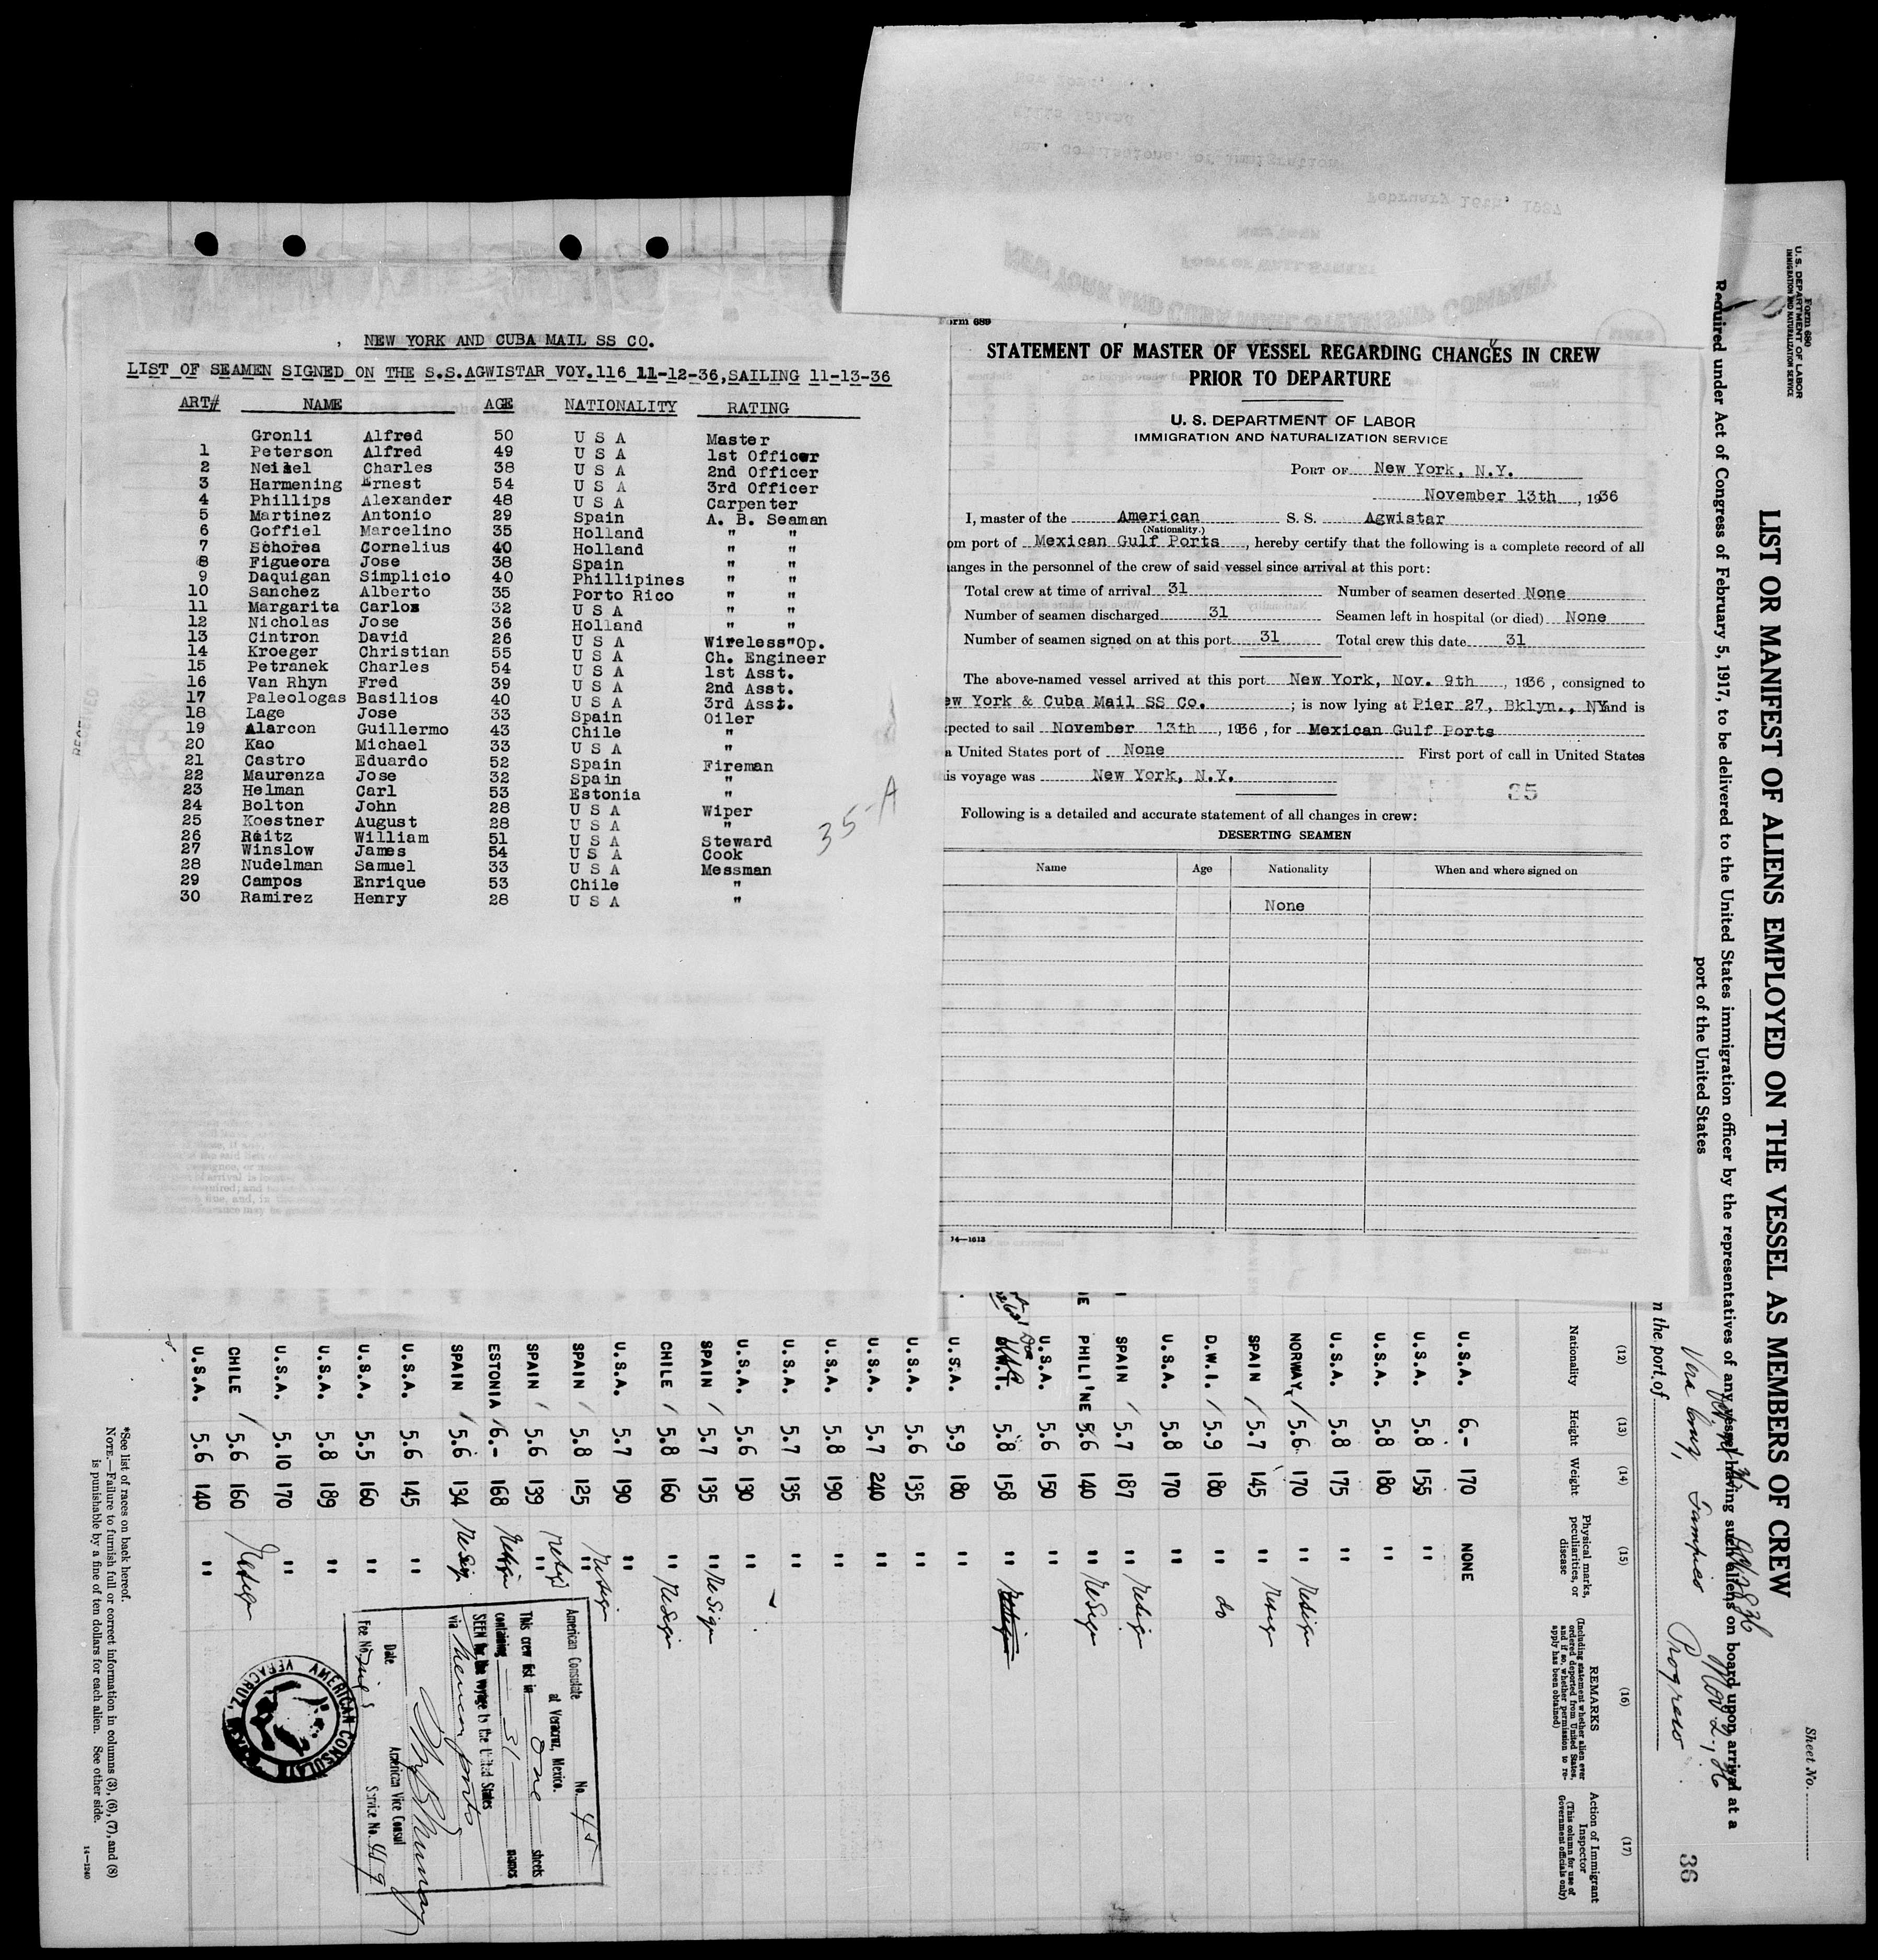 NEW YORK AND CUBA MAIL SS CO.
LIST OF SEAMEN SIGNED ON THE S.S.AGWISTAR VOY.116 11-12-36,SAILING 11-13-36
ART# NAME AGE NATIONALITY RATING
Gronli Alfred 50 U S A Master
1 Peterson Alfred 49 U S A 1st Officer
2 Charles 38 U S A 2nd Officer
3 Harmening Ernest 54 U S A 3rd Officer
4 Phillips Alexander 48 U S A Carpenter
5 Martinez Antonio 29 Spain A. B. Seaman
6 Goffiel Marcelino 35 Holland " "
7 Schorea Cornelius 40 Holland " "
8 Figueora Jose 38 Spain " "
9 Daquigan Simplicio 40 Phillipines " "
10 Sanchez Alberto 35 Porto Rico " "
11 Margarita Carlos 32 U S A " "
12 Nicholas Jose 36 Holland " "
13 Cintron David 26 U S A Wireless"Op.
14 Kroeger Christian 55 U S A Ch. Engineer
15 Petranek Charles 54 U S A 1st Asst.
16 Van Rhyn Fred 39 U S A 2nd Asst.
17 Paleologas Basilios 40 U S A 3rd Asst.
18 Lage Jose 33 Spain Oiler
19 Alarcon Guillermo 43 Chile "
20 Kao Michael 33 U S A "
21 Castro Eduardo 52 Spain Fireman
22 Maurenza Jose 32 Spain "
23 Helman Carl 53 Estonia "
24 Bolton John 28 U S A Wiper
25 Koestner August 28 U S A "
26 Reitz William 51 U S A Steward
27 Winslow James 54 U S A Cook
28 Nudelman Samuel 33 U S A Messman
29 Campos Enrique 53 Chile "
30 Ramirez Henry 28 U S A "
35-A
orm 689
STATEMENT OF MASTER OF VESSEL REGARDING CHANGES IN CREW
PRIOR TO DEPARTURE
U. S. DEPARTMENT OF LABOR
IMMIGRATION AND NATURALIZATION SERVICE
PORT OF New York, N.Y.
November 13th , 1936
I, master of the American S. S. Agwistar
(Nationality.)
om port of Mexican Gulf Ports , hereby certify that the following is a complete record of all
anges in the personnel of the crew of said vessel since arrival at this port:
Total crew at time of arrival 31 Number of seamen deserted None
Number of seamen discharged 31 Seamen left in hospital (or died) None
Number of seamen signed on at this port 31 Total crew this date 31
The above-named vessel arrived at this port New York, Nov. 9th , 1936 , consigned to
ew York & Cuba Mail SS Co. ; is now lying at Pier 27, Bklyn., NY and is
pected to sail November 13th , 1936 , for Mexican Gulf Ports
a United States port of None First port of call in United States
is voyage was New York, N.Y.
35
Following is a detailed and accurate statement of all changes in crew:
DESERTING SEAMEN
Name Age Nationality When and where signed on
None
14—1613
Form 680
U. S. DEPARTMENT OF LABOR
IMMIGRATION AND NATURALIZATION SERVICE
Sheet No.
LIST OR MANIFEST OF ALIENS EMPLOYED ON THE VESSEL AS MEMBERS OF CREW
Required under Act of Congress of February 5, 1917, to be delivered to the United States immigration officer by the representatives of any vessel having such aliens on board upon arrival at a
port of the United States
m the port of Vera Cruz, Tampico Progreso
Nov 2, 36
36
(12) (13) (14) (15) (16) (17)
Nationality Height Weight Physical marks, peculiarities, or disease REMARKS (Including statement whether alien ever ordered deported from United States, and if so, whether permission to reapply has been obtained) Action of Immigrant Inspector (This column for use of Government officials only)
U.S.A. 6.- 170 NONE
U.S.A. 5.8 155 "
U.S.A. 5.8 180 "
U.S.A. 5.8 175 "
NORWAY / 5.6 170 " Resign
SPAIN / 5.7 145 " Resign
D.W.I. / 5.9 180 " do
U.S.A. 5.8 170 "
SPAIN / 5.7 187 " Resign
PHILI'NE 5.6 140 " Resign
U.S.A. 5.6 150 "
5.8 158 " Resign
U.S.A. 5.9 180 "
U.S.A. 5.6 135 "
U.S.A. 5.7 240 "
U.S.A. 5.8 190 "
U.S.A. 5.7 135 "
U.S.A. 5.6 130 "
SPAIN / 5.7 135 " Resign
CHILE / 5.8 160 " Resign
U.S.A. 5.7 190 "
SPAIN / 5.8 125 " Resign
SPAIN / 5.6 139 " Resign
ESTONIA / 6.- 168 Resign
SPAIN / 5.6 134 Resign
U.S.A. 5.6 145 "
U.S.A. 5.5 160 "
U.S.A. 5.8 189 "
U.S.A. 5.10 170 "
CHILE / 5.6 160 Resign
U.S.A. 5.6 140 "
American Consulate No. 45
at Veracruz, Mexico.
This crew list in one sheets
containing 31 names
SEEN for the voyage to the United States
via Mexican ports
American Vice Consul
Date
Fee No Service No. 459
AMERICAN CONSULATE VERACRUZ, MEX.
*See list of races on back hereof.
NOTE.—Failure to furnish full or correct information in columns (3), (6), (7), and (8)
is punishable by a fine of ten dollars for each alien. See other side.
14—1240